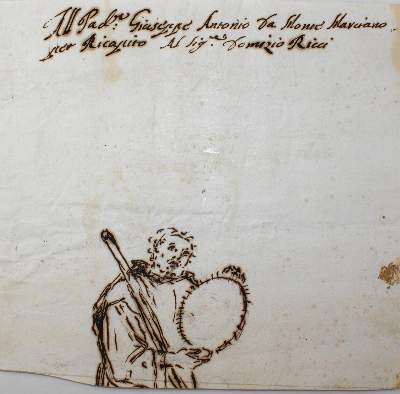 Al Pad.re Giuseppe Antonio Da Monte Marciano
per Ricapito Al Sig.re Domizio Ricci